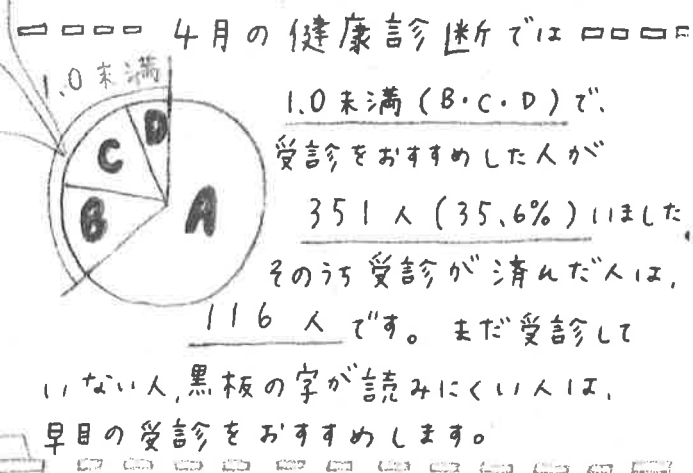 4月の健康診断では
1.0未満
1.0未満(B・C・D)で、
D
C
受診をおすすめした人が
B
A
351人(35.6%)いました。
そのうち受診が済んだ人は、
116人です。まだ受診して
いない人、黒板の字が読みにくい人は、
早目の受診をおすすめします。